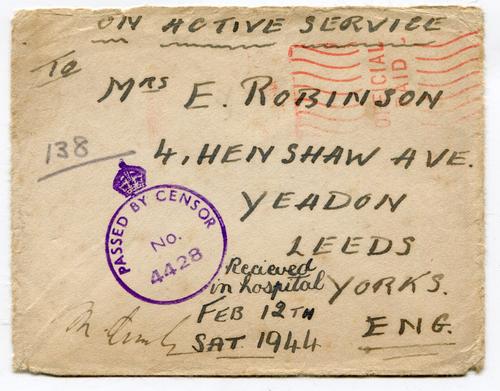 ON ACTIVE SERVICE
OFFICIAL
PAID
To
MRS E. ROBINSON
138
4, HENSHAW AVE.
YEADON
LEEDS
YORKS.
ENG.
PASSED BY CENSOR
No.
4428
Recieved
in hospital
FEB 12TH
SAT. 1944